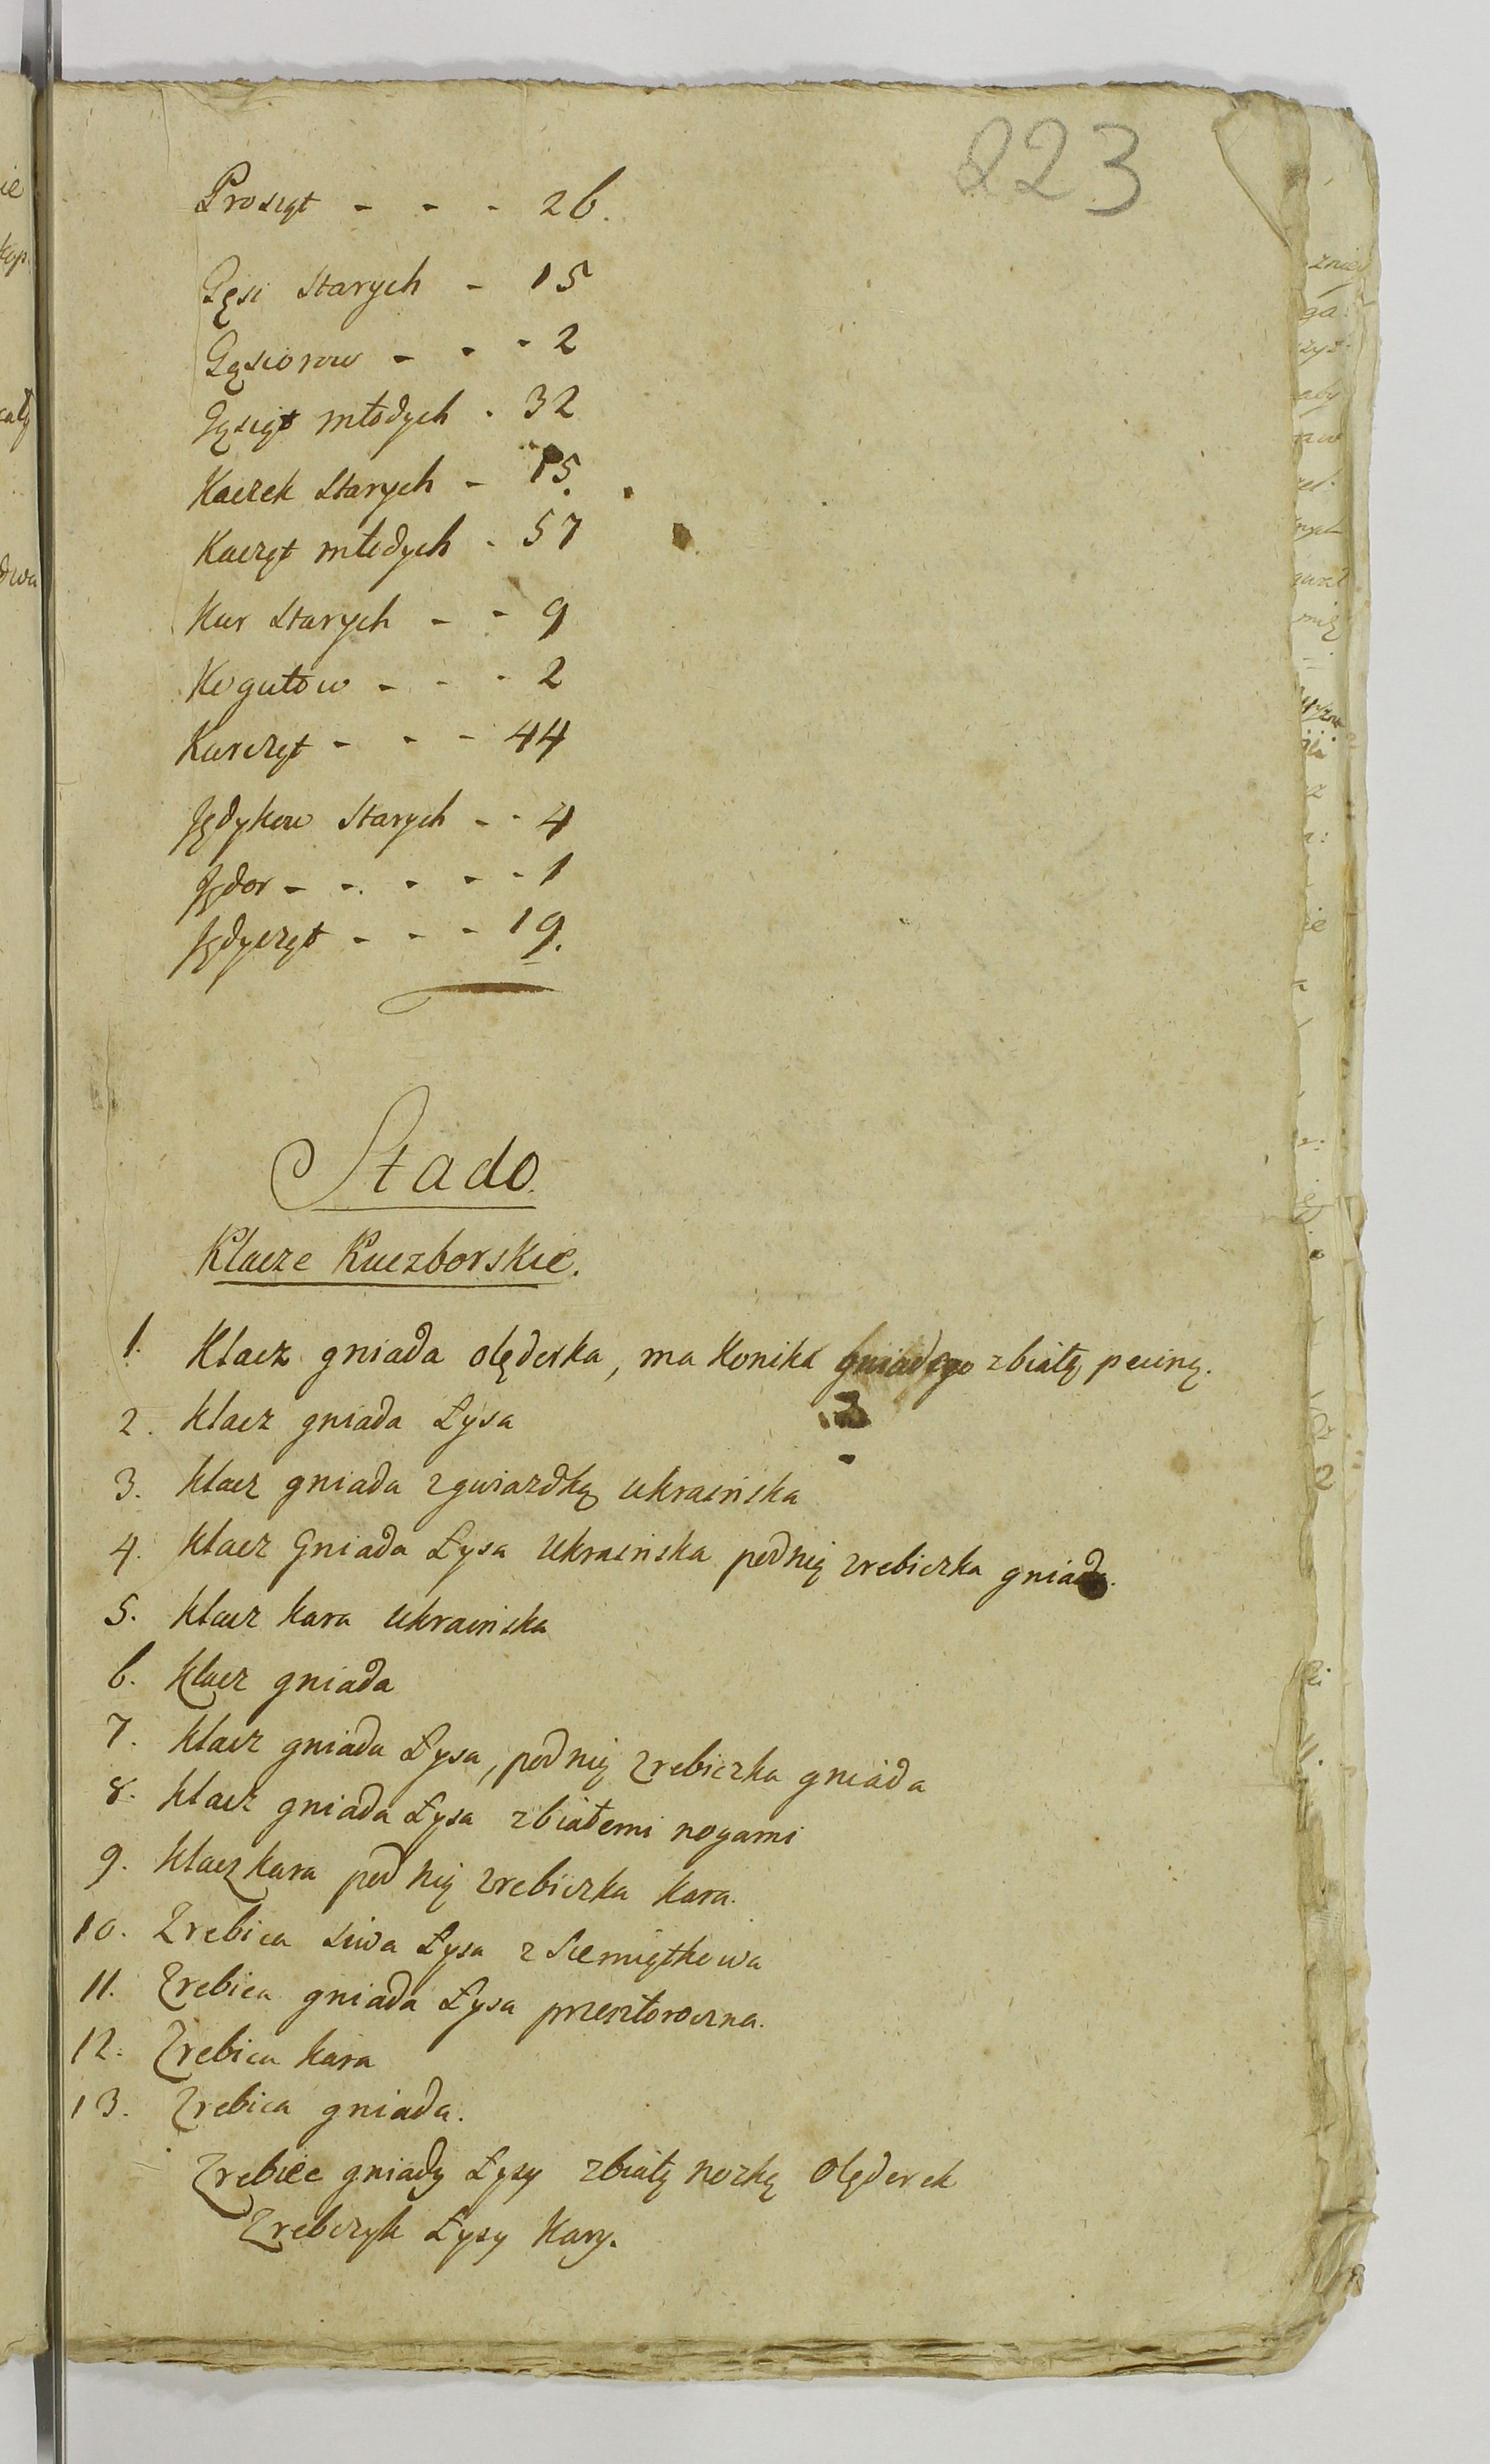 223
Prosiąt - - - 26.
Gęsi Starych - 15
Gąsiorow - - - 2
Gąsiąt młodych - 32
Kaczek Starych - 15.
Kacząt młodych - 57
Kur Starych - - 9
Kogutow - - - 2
Kurcząt - - - 44
Jędykow Starych - - 4
Jędor - - - - - 1
Jędycząt - - - 19.
Stado.
Klacze Kuczborskie.
1. Klacz gniada olęderka, ma Konika gniadego zbiałą pęciną.
2. Klacz gniada Łysa
3. Klacz gniada zgwiazdką ukrainska
4. Klacz Gniada Łysa Ukrainska podnią zrebiczka gniada.
5. Klacz kara ukrainska
6. Klacz gniada
7. Klacz gniada Łysa, podnią Zrebiczka gniada
8. Klacz gniada Łysa zbiałemi nogami
9. Klacz kara pod nią zrebiczka kara.
10. Zrebica siwa Łysa z Siemiątkowa
11. Zrebica gniada Łysa przeszłoroczna.
12. Zrebica kara
13. Zrebica gniada.
Zrebiec gniady Łysy zbiałą nozką Olęderek
Zrebczyk Łysy Kary.